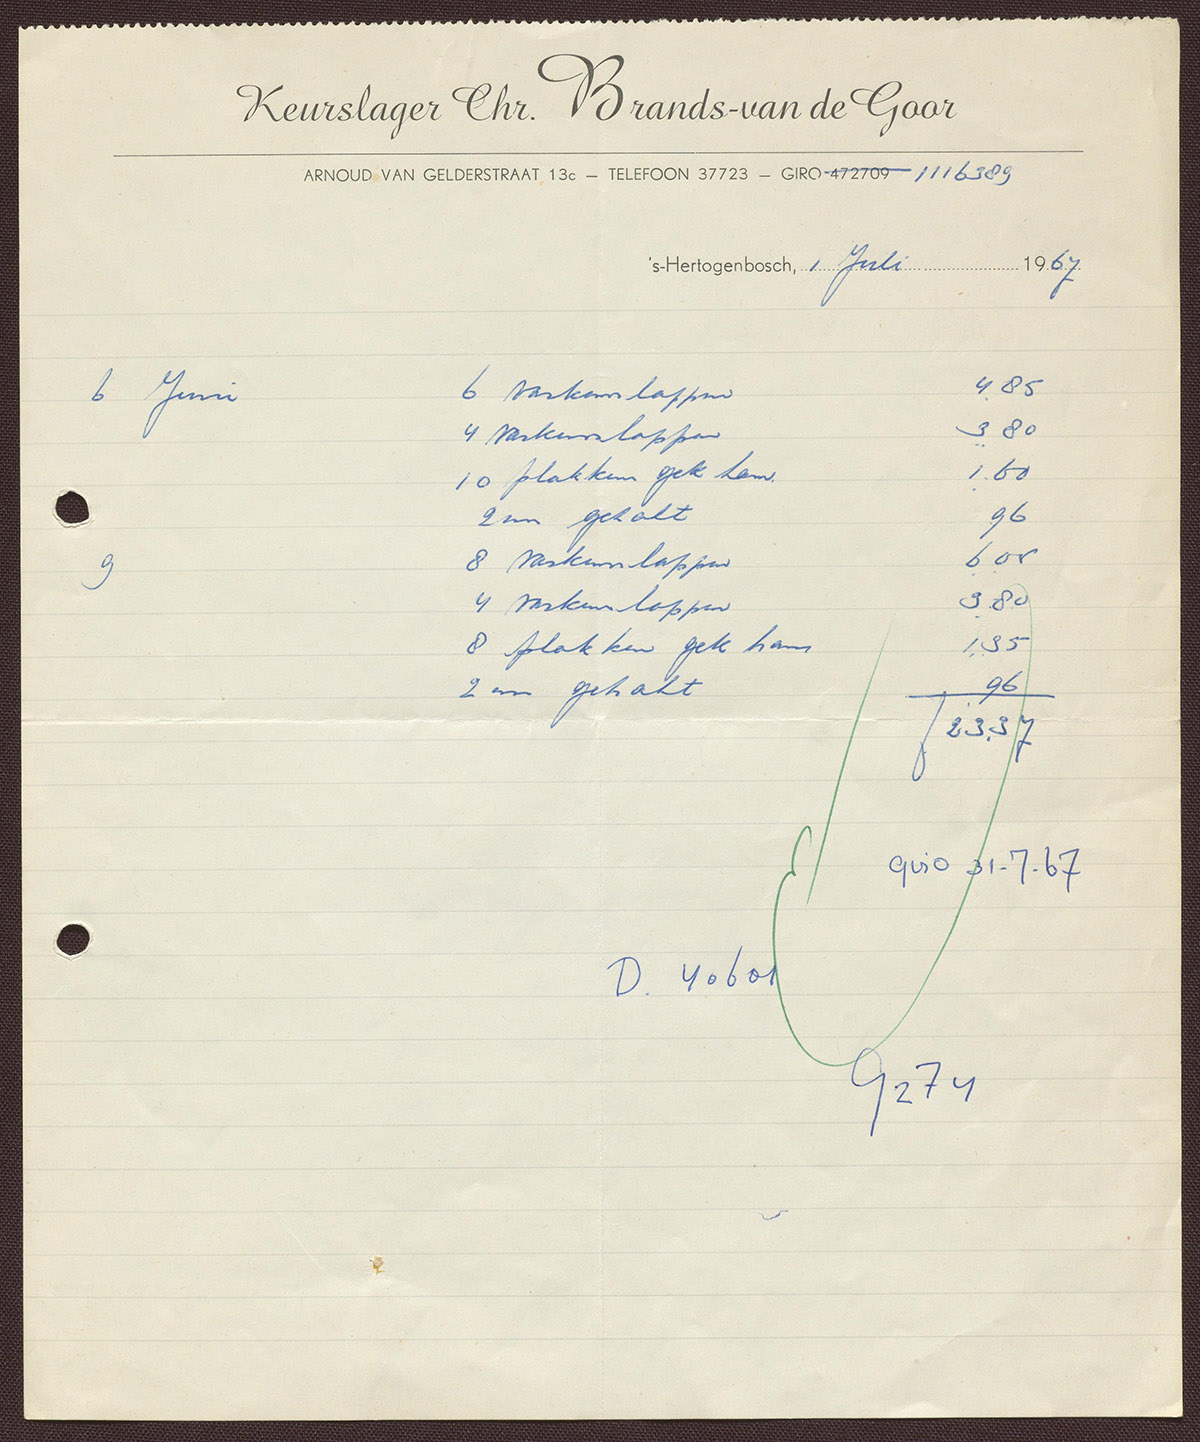 Keurslager Chr. Brands-van de Goor
ARNOUD VAN GELDERSTRAAT 13c — TELEFOON 37723 — GIRO 472709 1116389
's-Hertogenbosch, 1 Juli 1967
6 Juni 6 varkenslappen 4.85
4 varkenslappen 3.80
10 plakken gek ham 1.60
2 ons gehakt 96
9 8 varkenslappen 6.05
4 varkenslappen 3.80
8 plakken gek ham 1.35
2 ons gehakt 96
f 23.37
giro 31-7-67
D. 40601
G274